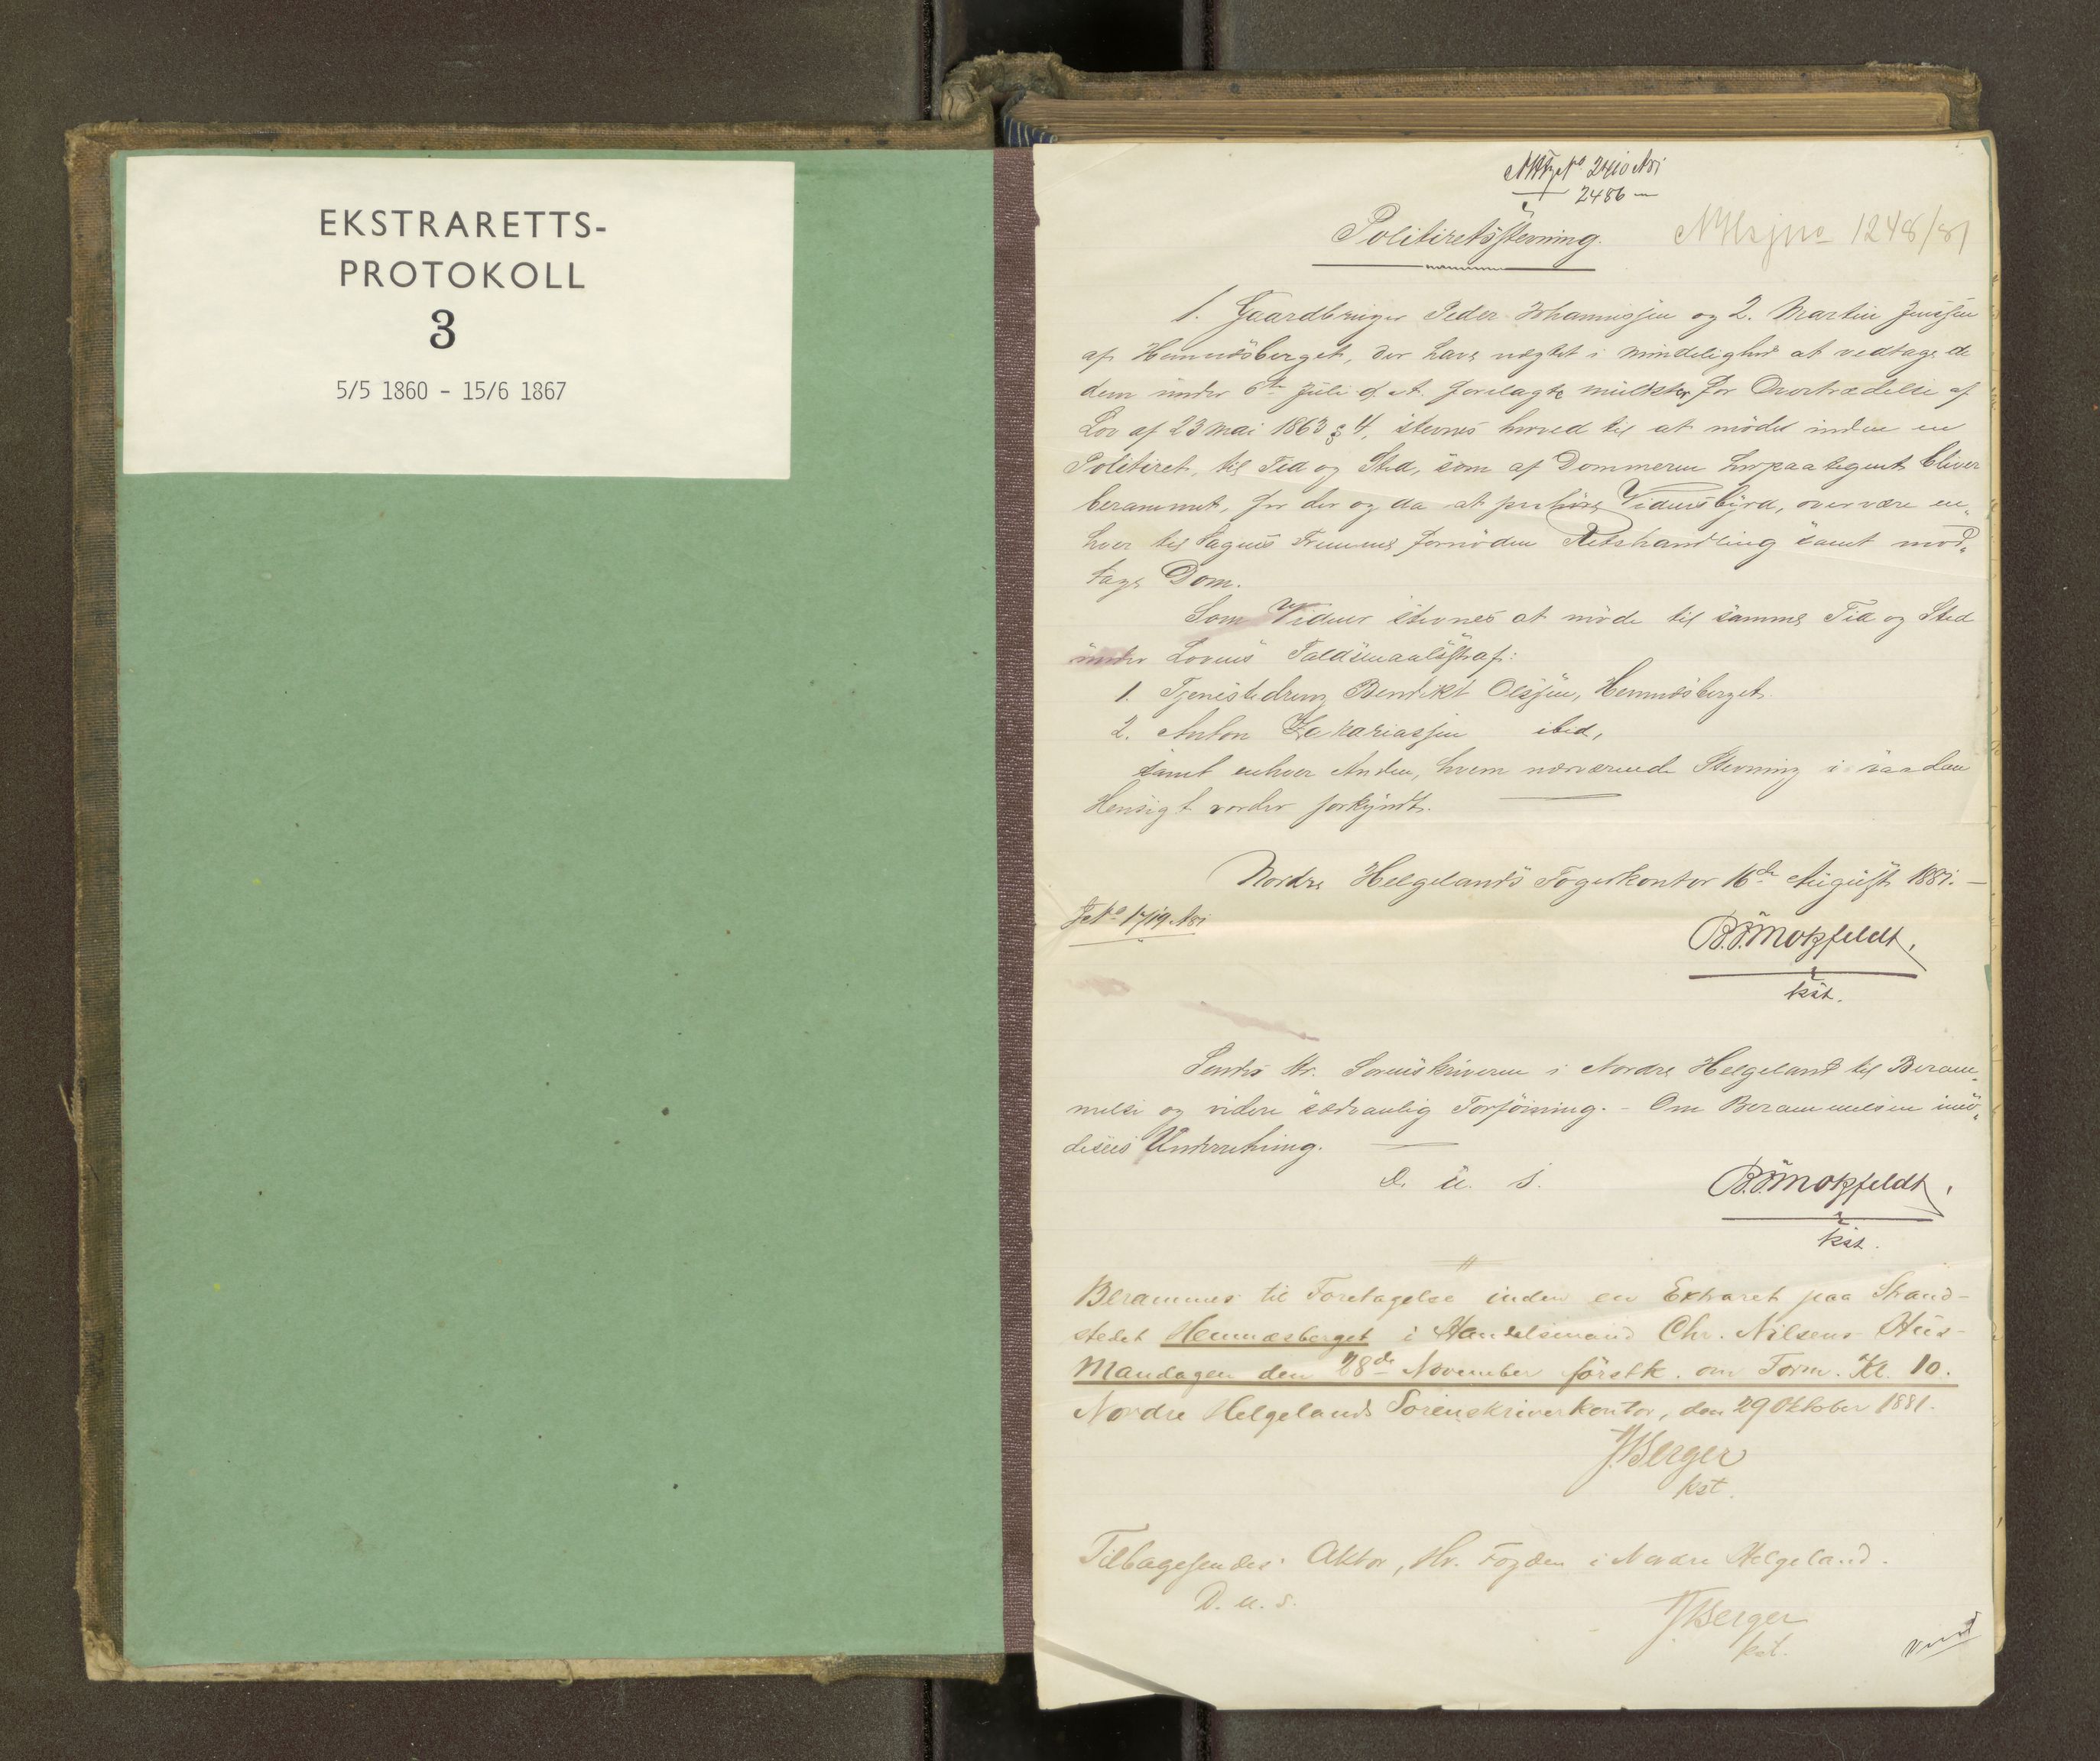 EKSTRARETTS-
PROTOKOLL
3
5/5 1860 - 15/6 1867
2486 -
Politiretsstevning.
1248/81
1. Gaardbruger Peder Johannissen og 2. Martin Jenssen
af Hemnæsberget, der have nægtet i Mindelighed at vedtage de
dem under 6te Juli d. A. forelagte mulkter for Overtrædelse af
Lov af 23 Mai 1863 § 4, stevnes herved til at møde inden en
Politiret, til Tid og Sted, som af Dommeren herpaategnet bliver
berammet, for der og da at paahøre Vidnesbyrd, overvære en-
hver til Sagens Fremme fornøden Retshandling samt mod-
tage Dom.
Som Vidner stevnes at møde til samme Tid og Sted
under Lovens Faldsmaalsstraf:
1. Tjenestedreng Bendikt Olssen, Hemnæsberget.
2. Anton Zakariassen ibid,
samt enhver Anden, hvem nærværende Stevning i saadan
Hensigt vorder forkyndt.
Nordre Helgelands Fogerkontor 16de August 1881.
J. No 1719. A81
B. S. Motzfeldt.
kst.
Sendes Hr. Sorenskriveren i Nordre Helgeland til Beram-
melse og videre sædvanlig Forføining. - Om Berammelsen imø-
desees Underretning.
D. u. s.
B. S. Motzfeldt.
kst.
Berammes til Foretagelse inden en Extraret paa Strand-
stedet Hemnæsberget i Handelsmand Chr. Nilsens Hus
Mandagen den 28de November førstk. om Form. Kl. 10.
Nordre Helgelands Sorenskriverkontor, den 29 Oktober 1881.
J. Berger
kst.
Tilbagesendes Aktor, Hr. Fogden i Nordre Helgeland.
D. u. s.
J. Berger
kst.
Vend